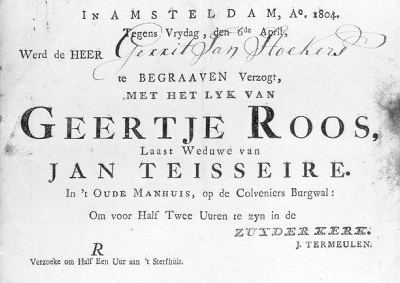 IN AMSTELDAM, Ao. 1804.
Tegens Vrydag, den 6de April,
Werd de HEER Gerrit Jan Stoekers
te BEGRAAVEN Verzogt,
MET HET LYK VAN
GEERTJE ROOS,
Laast Weduwe van
JAN TEISSEIRE.
In 't OUDE MANHUIS, op de Colveniers Burgwal:
Om voor Half Twee Uuren te zyn in de
ZUYDERKERK.
J. TERMEULEN.
R
Verzoeke om Half Een Uur aan 't Sterfhuis.